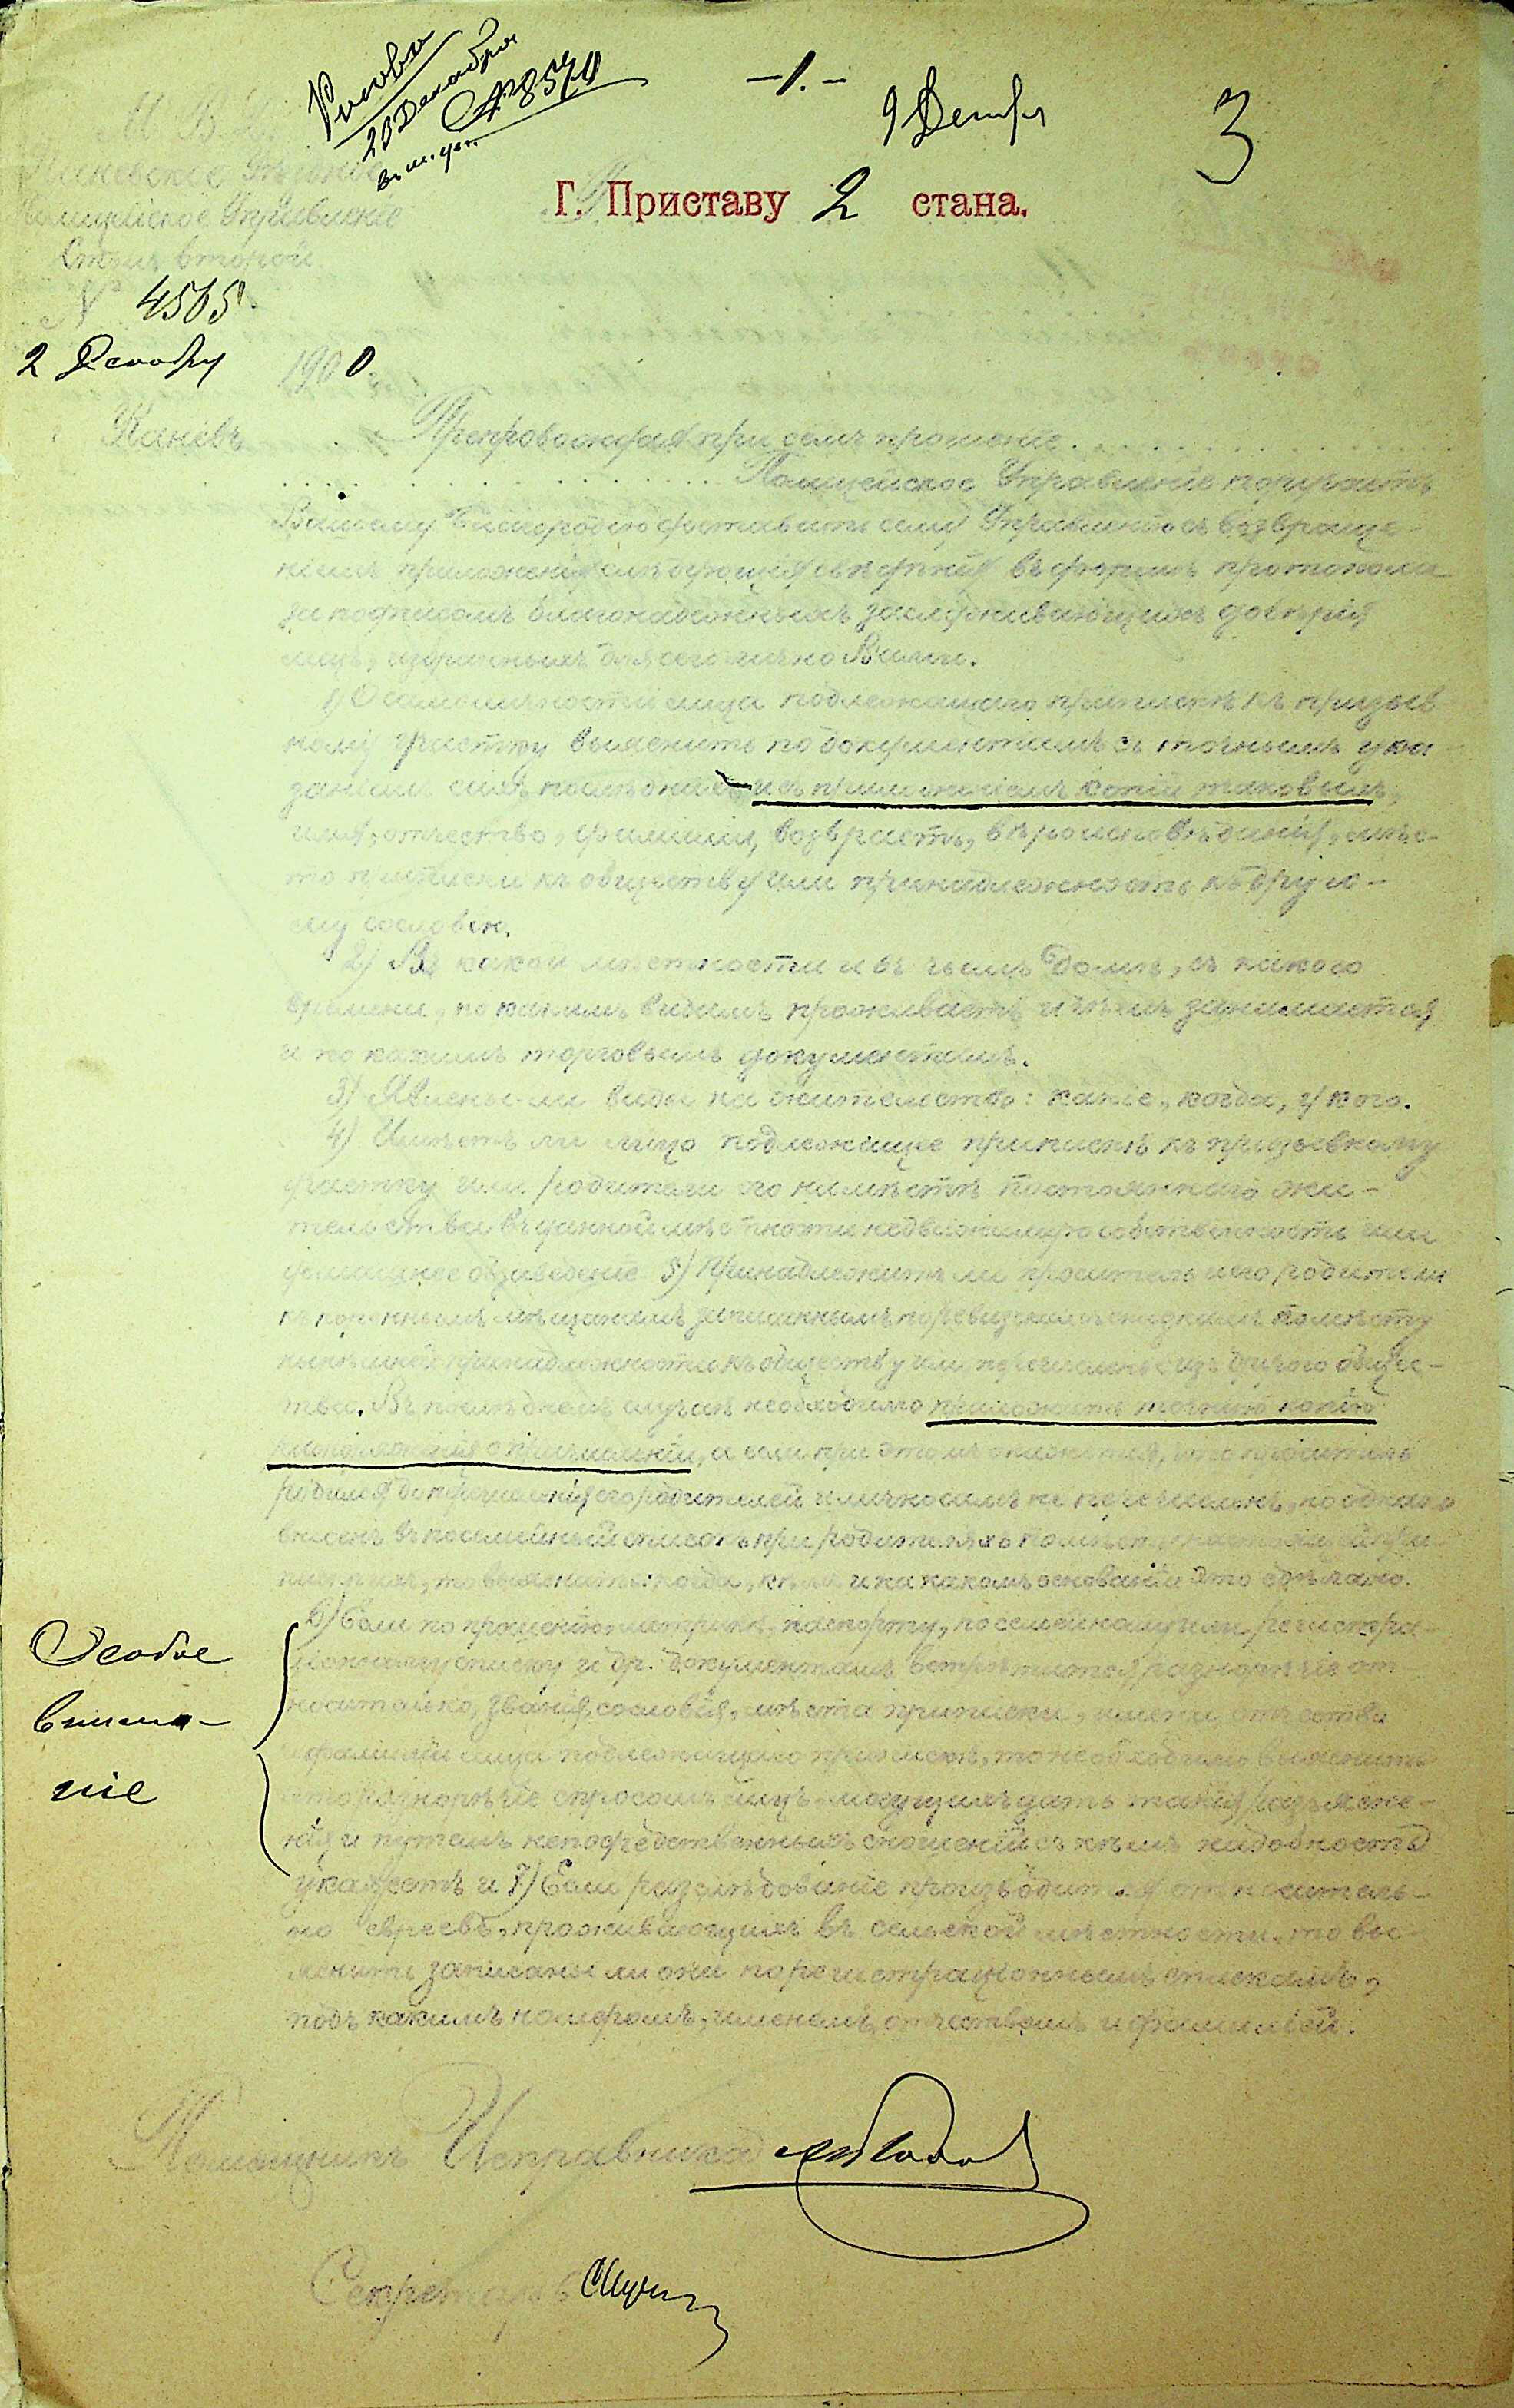 20 Декабря
№ 8570
-1.-
9 Декабр
3
Г. Приставу 2 стана.
М. В. Д.
Каневское Уѣздное
Полицейское Управленіе
Столъ второй
N 4565
2 Декабря 1900
Каневъ
Препровождая при семъ прошеніе
Полицейское Управленіе поручаетъ
Вашему Благородію доставить сему Управленію съ возвраще-
ніемъ приложенія слѣдующія свѣдѣнія въ формѣ протокола
за подписомъ благонадежныхъ заслуживающихъ довѣрія
лицъ, избранныхъ для сего лично Вами.
1) О самоличности лица подлежащаго припискѣ къ призыв
ному участку выяснить по документамъ съ точнымъ ука
заніемъ сихъ послѣднихъ и съ приложеніемъ копій таковыхъ,
имя, отчество, фамилію, возврастъ, вѣроисповѣданія, мѣс-
то приписки къ обществу или принадлежность къ друго-
му сословію.
2) Въ какой мѣстности и въ чьемъ домѣ, съ какого
времени, по какимъ видамъ проживаетъ и чѣмъ занимается
и по какимъ торговымъ документамъ.
3) Явлены-ли виды на жительство: какіе, когда, у кого.
4) Имѣетъ ли лицо подлежащее припискѣ къ призывному
участку или родители его на мѣстѣ постояннаго жи-
тельства въ данной мѣстности недвижимую собственность или
домашнее обзаведеніе 5) Принадлежитъ ли проситель и его родители
къ кореннымъ мѣщанамъ записаннымъ по ревизскимъ сказкамъ по мѣсту
нынѣшней принадлежности къ обществу или перечислены изъ другого общес-
тва. Въ послѣднемъ случаѣ необходимо приложить точную копію
о причисленіи, а если при этомъ окажется, что проситель
родился до причисленія его родителей и лично самъ не перечисленъ, но однако
внесенъ въ посемейный списокъ при родителяхъ по мѣсту
то выяснить: когда, кѣмъ и на какомъ основаніи это сдѣлано.
6) Если по прошенію, метрикѣ, паспорту, посемейному или регистра-
ціонному списку и др. документамъ встрѣтится разнорѣчіе от
носительно, званія, сословія, мѣста приписки, имени, отчества
и фамиліи лица подлежащаго припискѣ, то необходимо выяснить
это разнорѣчіе спросомъ лицъ могущихъ дать такія разъясне-
нія и путемъ непосредственныхъ сношеній съ кѣмъ надобность
укажетъ и 7) Если разслѣдованіе производится относитель-
но евреевъ, проживающихъ въ сельской мѣстности, то вы-
яснить записаны ли они по регистраціоннымъ спискамъ,
подъ какимъ номеромъ, именемъ, отчествомъ и фамиліей.
Особое
внима-
ніе
Помощникъ Исправника
Секретарь